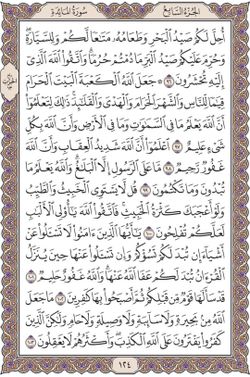 سُورَةُ المَائِدَةِ الجُزْءُ السَّابِعُ
أُحِلَّ لَكُمْ صَيْدُ الْبَحْرِ وَطَعَامُهُ مَتَاعًا لَّكُمْ وَلِلسَّيَّارَةِ
وَحُرِّمَ عَلَيْكُمْ صَيْدُ الْبَرِّ مَا دُمْتُمْ حُرُمًا وَاتَّقُوا اللَّهَ الَّذِي
إِلَيْهِ تُحْشَرُونَ ٩٦ جَعَلَ اللَّهُ الْكَعْبَةَ الْبَيْتَ الْحَرَامَ
قِيَامًا لِّلنَّاسِ وَالشَّهْرَ الْحَرَامَ وَالْهَدْيَ وَالْقَلَائِدَ ذَلِكَ لِتَعْلَمُوا
أَنَّ اللَّهَ يَعْلَمُ مَا فِي السَّمَاوَاتِ وَمَا فِي الْأَرْضِ وَأَنَّ اللَّهَ بِكُلِّ
شَيْءٍ عَلِيمٌ ٩٧ اعْلَمُوا أَنَّ اللَّهَ شَدِيدُ الْعِقَابِ وَأَنَّ اللَّهَ
غَفُورٌ رَّحِيمٌ ٩٨ مَّا عَلَى الرَّسُولِ إِلَّا الْبَلَاغُ وَاللَّهُ يَعْلَمُ مَا
تُبْدُونَ وَمَا تَكْتُمُونَ ٩٩ قُل لَّا يَسْتَوِي الْخَبِيثُ وَالطَّيِّبُ
وَلَوْ أَعْجَبَكَ كَثْرَةُ الْخَبِيثِ فَاتَّقُوا اللَّهَ يَا أُولِي الْأَلْبَابِ
لَعَلَّكُمْ تُفْلِحُونَ ١٠٠ يَا أَيُّهَا الَّذِينَ آمَنُوا لَا تَسْأَلُوا عَنْ
أَشْيَاءَ إِن تُبْدَ لَكُمْ تَسُؤْكُمْ وَإِن تَسْأَلُوا عَنْهَا حِينَ يُنَزَّلُ
الْقُرْآنُ تُبْدَ لَكُمْ عَفَا اللَّهُ عَنْهَا وَاللَّهُ غَفُورٌ حَلِيمٌ ١٠١
قَدْ سَأَلَهَا قَوْمٌ مِّن قَبْلِكُمْ ثُمَّ أَصْبَحُوا بِهَا كَافِرِينَ ١٠٢ مَا جَعَلَ
اللَّهُ مِن بَحِيرَةٍ وَلَا سَائِبَةٍ وَلَا وَصِيلَةٍ وَلَا حَامٍ وَلَكِنَّ الَّذِينَ
كَفَرُوا يَفْتَرُونَ عَلَى اللَّهِ الْكَذِبَ وَأَكْثَرُهُمْ لَا يَعْقِلُونَ ١٠٣
١٢٤